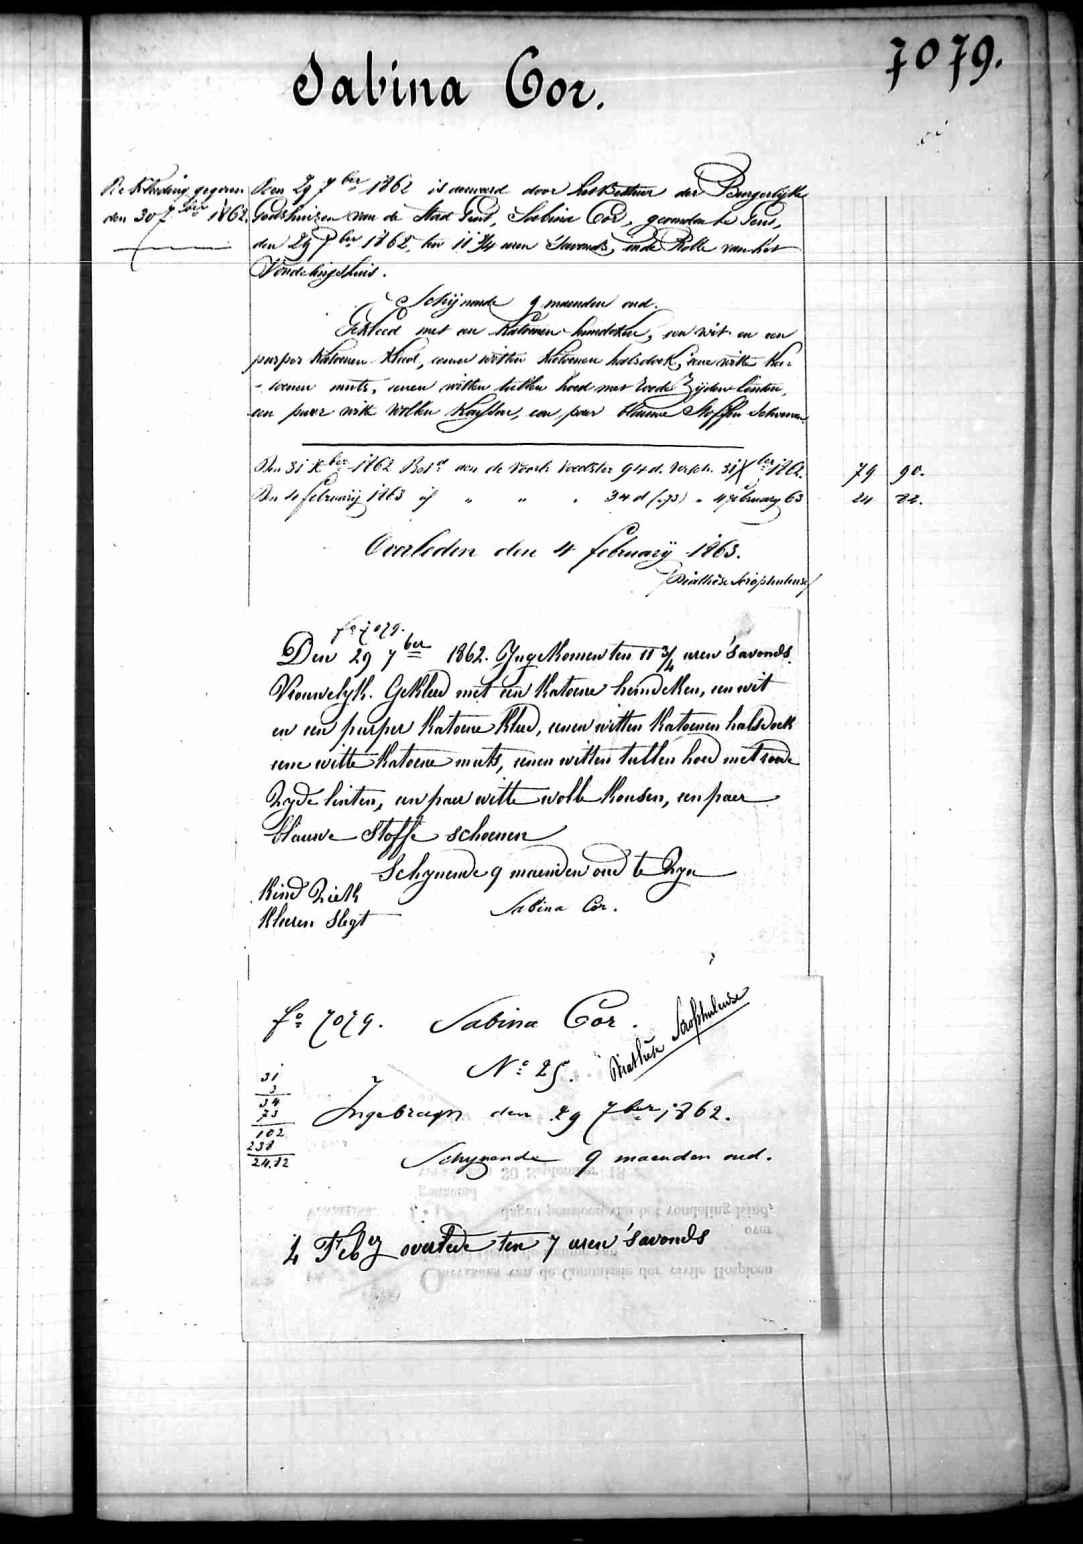 7079.
Sabina Cor.
De Kleeding gegeven
den 30 7ber 1862.
Den 29 7ber 1862 is aenveerd door het Bestuur der Burgerlyke
Godshuizen van de Stad Gent, Sabina Cor, gevonden te Gent,
den 29 7ber 1862, ten 11 3/4 uren s'avonds, in de Rolle van het
Vondelingshuis.
Schijnende 9 maenden oud.
Gekleed met een katoenen hemdeken, een wit en een
purper katoenen kleed, eenen witten katoenen halsdoek, eene witte ka-
-toenen muts, eenen witten tullen hoed met roode zijden linten,
een paer witte wollen kousen, een paer blauwe stoffen schoenen
Den 31 Xber 1862 Betd aen de voorle voedster 94 d. versch. 31 Xber 1862. 79 90.
Den 4 february 1863 id " " " 34 d (73) " 4 february 63 24 82.
Overleden den 4 february 1863.
(Diathèse Scrophuleuse)
fo 7079.
Den 29 7ber 1862. Ingekomen ten 11 3/4 uren 's avonds.
Vrouwelyk. Gekleed met een katoene hemdeken, een wit
en een purper katoene kleed, eenen witten katoenen halsdoek
eene witte katoene muts, eenen witten tullen hoed met roode
Zyde linten, een paer witte wolle kousen, een paer
blauwe stoffe schoenen
Schynende 9 maenden oud te Zyn
Kind Ziek
Kleeren slegt
Sabina Cor.
fo 7079. Sabina Cor.
Diathèse Scrophuleuse
No 25.
31
3
34
73
102
238
24.82
Ingebragt den 29 7ber 1862.
Schynende 9 maenden oud.
4 Feby overlede ten 7 uren 's avonds